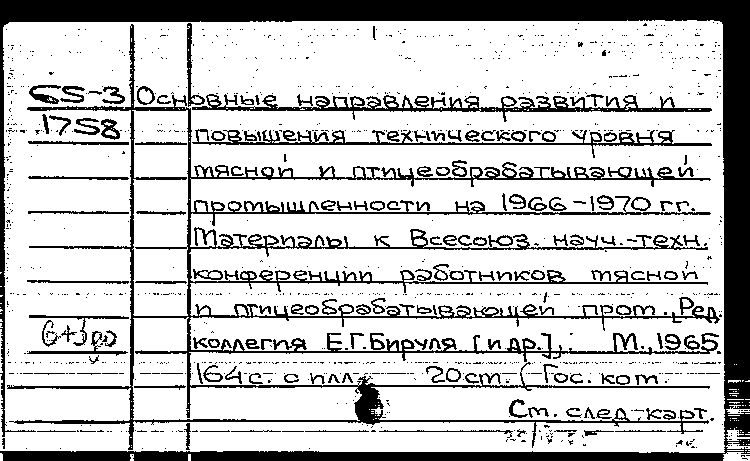 65-3 Основные направления развития и
1758 повышения технического уровня
мясной и птицеобрабатывающей
промышленности на 1966-1970 гг.
Материалы к Всесоюз. науч.-техн.
конференции работников мясной
и птицеобрабатывающей пром. [Ред.
коллегия Е.Г.Бируля [и др.],. М., 1965.
164 с. с илл. 20 см. (Гос. ком.
См. след. карт.